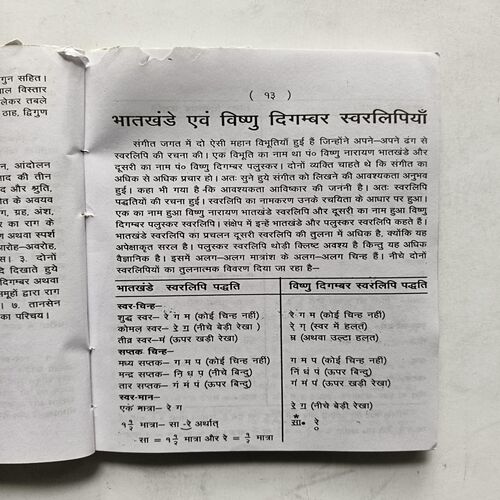 गुन सहित।
ाल विस्तार
लेकर तबले
ठाह, द्विगुण
न, आंदोलन
ाद की तीन
द और श्रुति,
ोत के अवयव
ग, ग्रह, अंश,
र का राग के
अथवा स्पर्श
ारोह-अवरोह,
स। ३. दोनों
दिखाते हुये
दिगम्बर अथवा
समूहों द्वारा राग
। ७. तानसेन
का परिचय।
( १३ )
भातखंडे एवं विष्णु दिगम्बर स्वरलिपियाँ
संगीत जगत में दो ऐसी महान विभूतियाँ हुई हैं जिन्होंने अपने-अपने ढंग से
स्वरलिपि की रचना की। एक विभूति का नाम था पं० विष्णु नारायण भातखंडे और
दूसरी का नाम पं० विष्णु दिगम्बर पलुस्कर। दोनों व्यक्ति चाहते थे कि संगीत का
अधिक से अधिक प्रचार हो। अतः सुने हुये संगीत को लिखने की आवश्यकता अनुभव
हुई। कहा भी गया है कि आवश्यकता आविष्कार की जननी है। अतः स्वरलिपि
पद्धतियों की रचना हुई। स्वरलिपि का नामकरण उनके रचयिता के आधार पर हुआ।
एक का नाम हुआ विष्णु नारायण भातखंडे स्वरलिपि और दूसरी का नाम हुआ विष्णु
दिगम्बर पलुस्कर स्वरलिपि। संक्षेप में इन्हें भातखंडे और पलुस्कर स्वरलिपि कहते हैं।
भातखंडे स्वरलिपि का प्रचलन दूसरी स्वरलिपि की तुलना में अधिक है, क्योंकि यह
अपेक्षाकृत सरल है। पलुस्कर स्वरलिपि थोड़ी क्लिष्ट अवश्य है किन्तु यह अधिक
वैज्ञानिक है। इसमें अलग-अलग मात्रांश के अलग-अलग चिन्ह हैं। नीचे दोनों
स्वरलिपियों का तुलनात्मक विवरण दिया जा रहा है-
भातखंडे स्वरलिपि पद्धति विष्णु दिगम्बर स्वरलिपि पद्धति
स्वर-चिन्ह-
शुद्ध स्वर- रे ग म (कोई चिन्ह नहीं) रे ग म (कोई चिन्ह नहीं)
कोमल स्वर- रे॒ ग॒ (नीचे बेड़ी रेखा ) रे ग् (स्वर में हलंत)
तीव्र स्वर-म॑ (ऊपर खड़ी रेखा) (अथवा उल्टा हलंत)
सप्तक चिन्ह-
मध्य सप्तक- ग म प (कोई चिन्ह नहीं) ग म प (कोई चिन्ह नहीं)
मन्द्र सप्तक- नि़ ध़ प़ (नीचे बिन्दु) निं धं पं (ऊपर बिन्दु)
तार सप्तक- गं मं पं (ऊपर बिन्दु) ग॑ म॑ प॑ (ऊपर खड़ी रेखा)
स्वर-मान-
एक मात्रा- रे ग रे॒ ग॒ (नीचे बेड़ी रेखा)
१ १/२ मात्रा- सा -रे अर्थात्
सा = १ १/२ मात्रा और रे = १/२ मात्रा